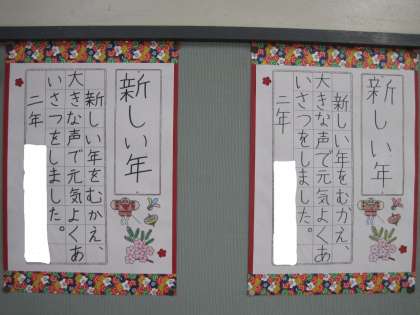 新しい年
新しい年をむかえ、
大きな声で元気よくあ
いさつをしました。
二年
新しい年
新しい年をむかえ、
大きな声で元気よくあ
いさつをしました。
二年